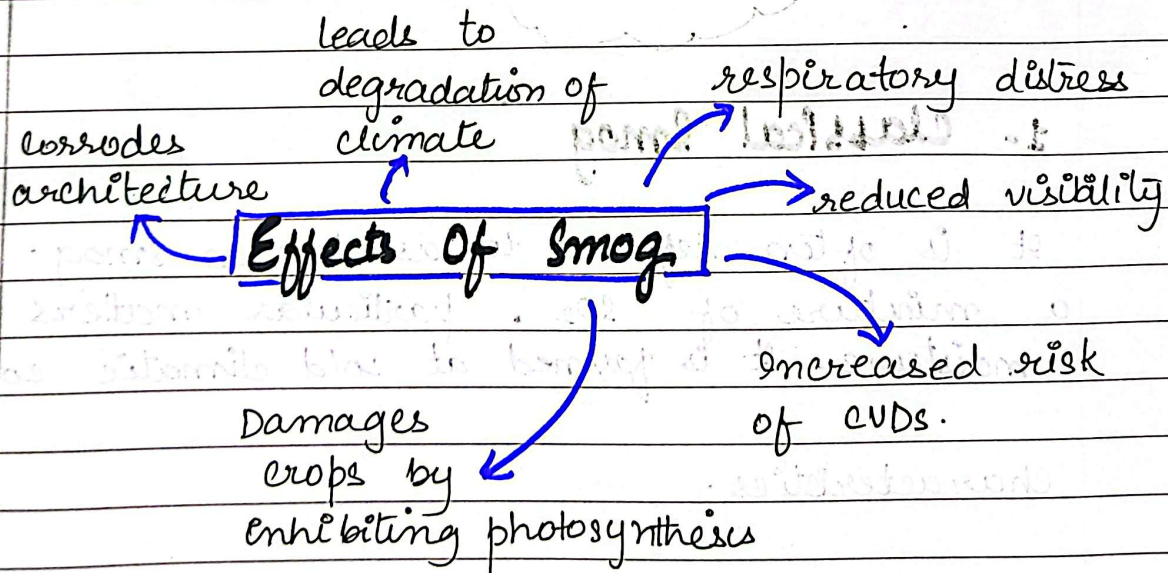 leads to
degradation of
climate
respiratory distress
corrodes
architecture
reduced visibility
Effects Of Smog
Increased risk
of CVDs.
Damages
crops by
enhibiting photosynthesis